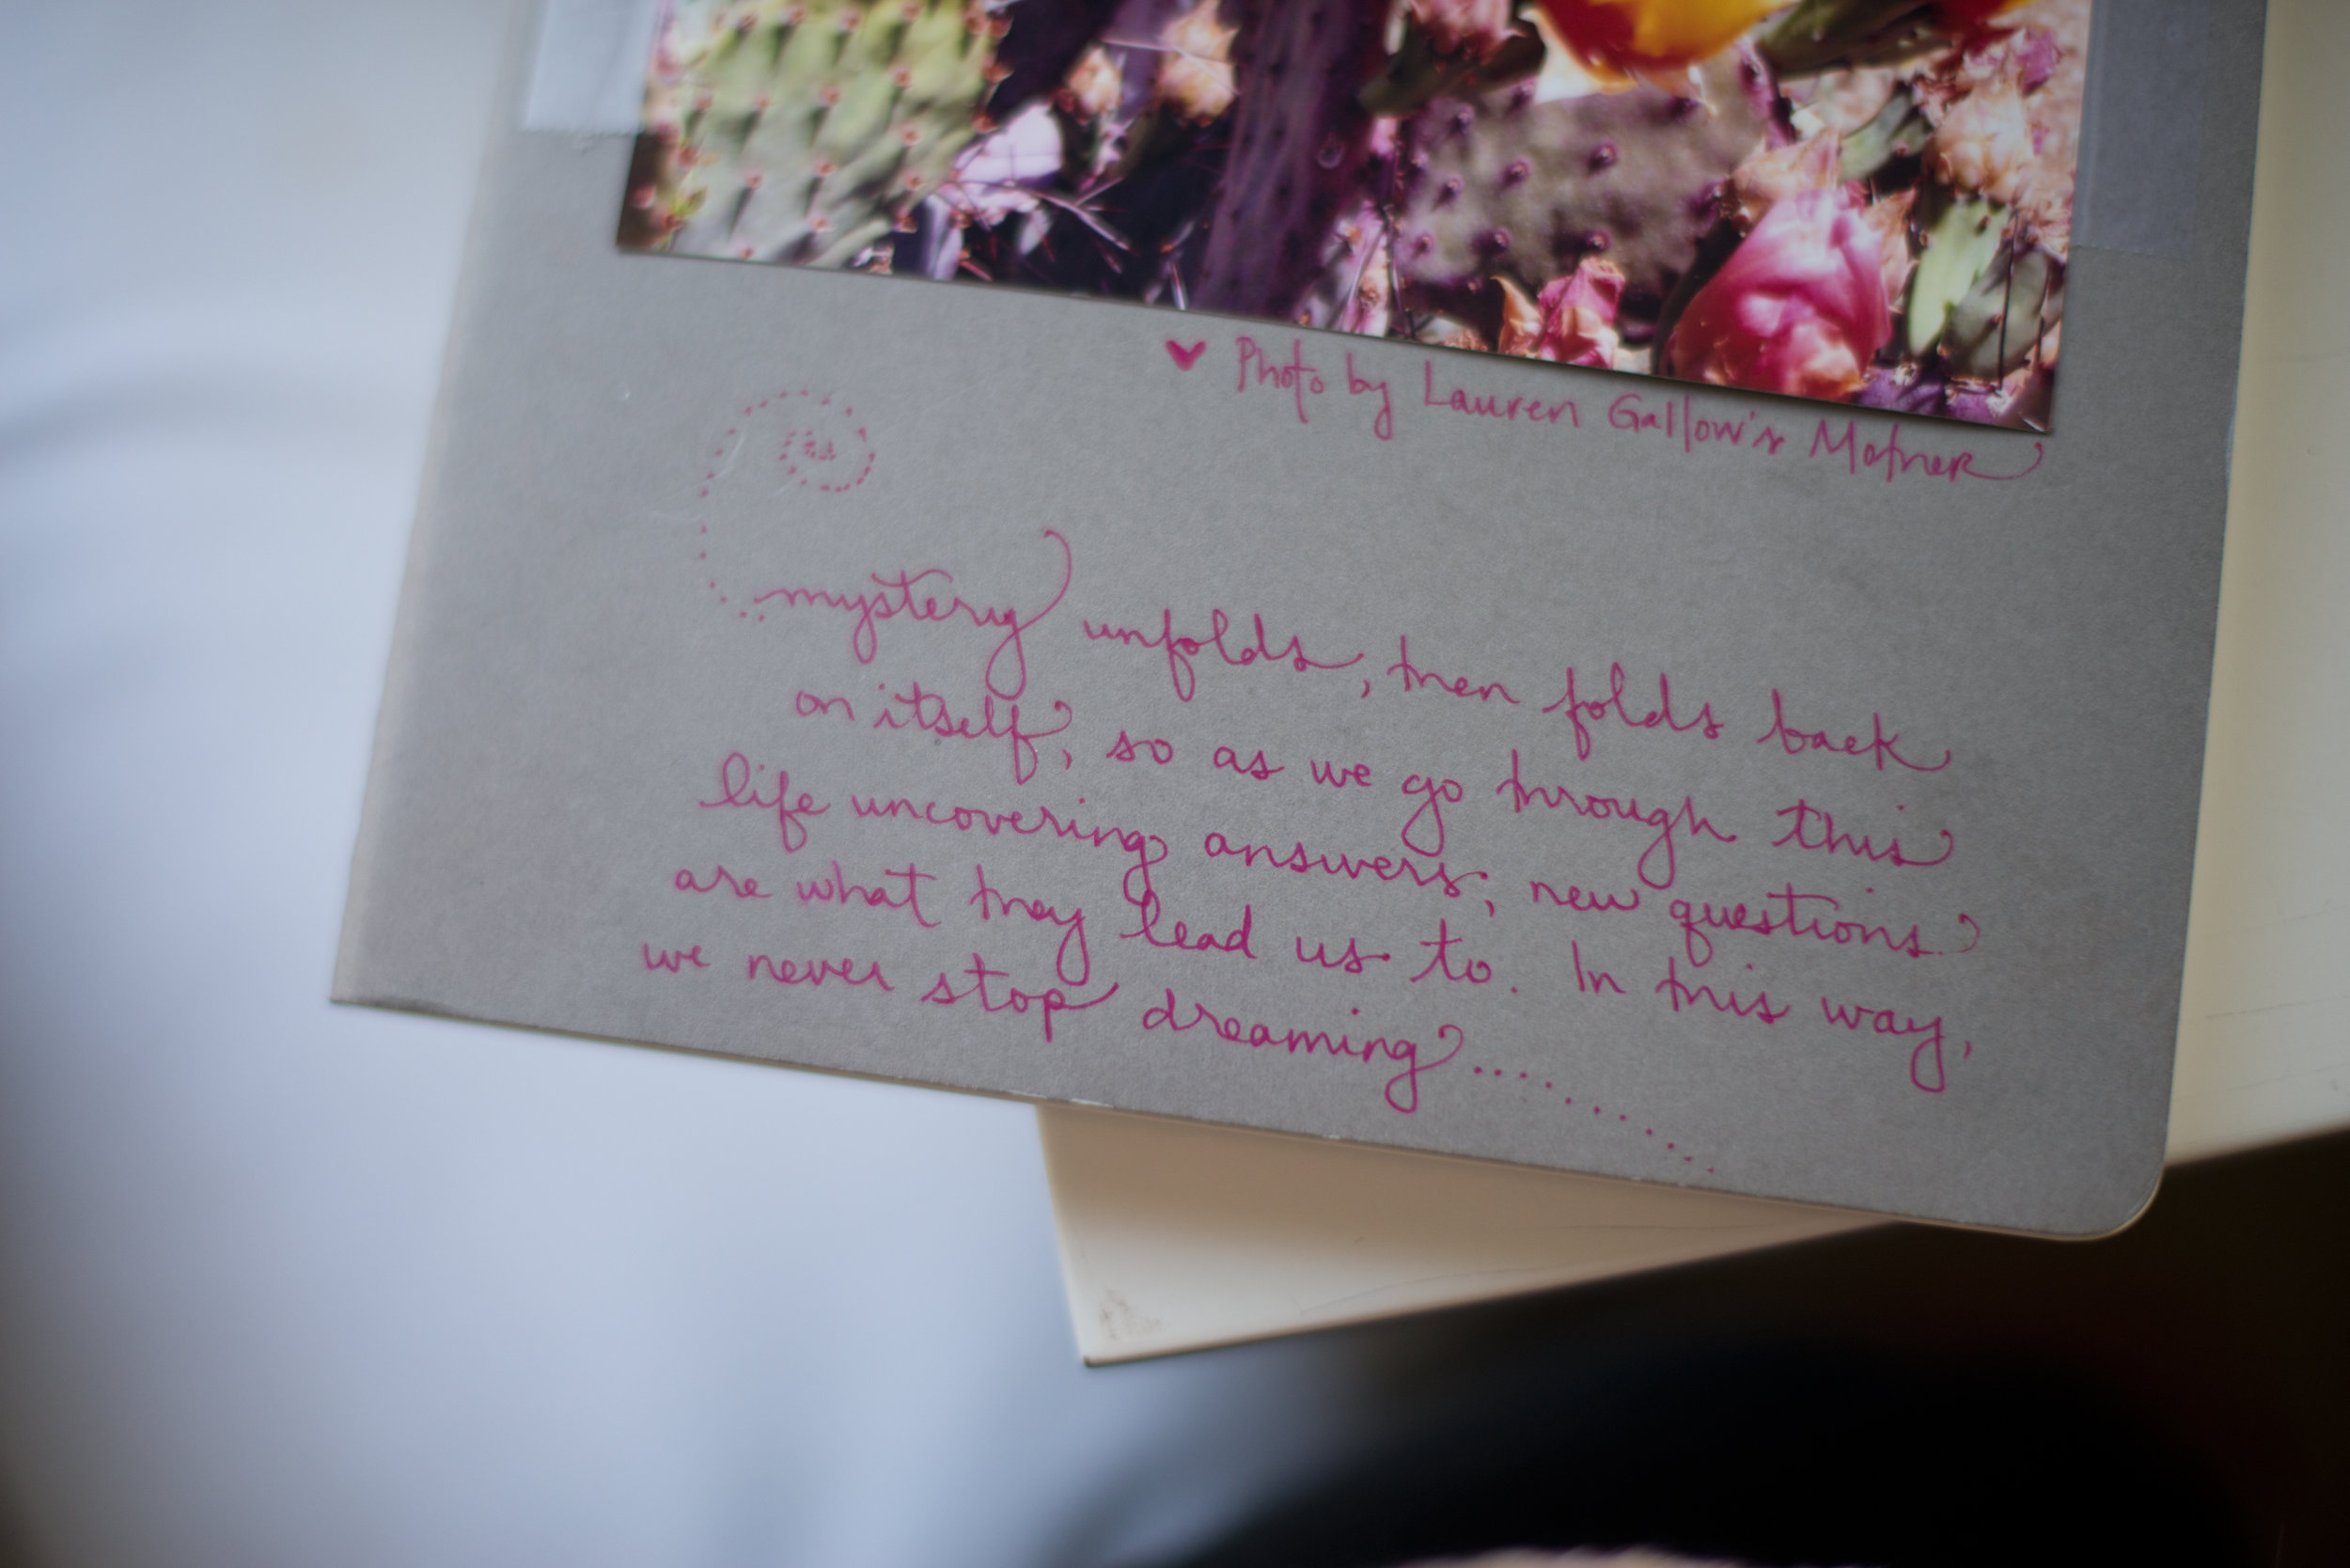 ♥ Photo by Lauren Gallow's Mother
mystery unfolds, then folds back
on itself, so as we go through this
life uncovering answers, new questions
are what they lead us to. In this way,
we never stop dreaming..............